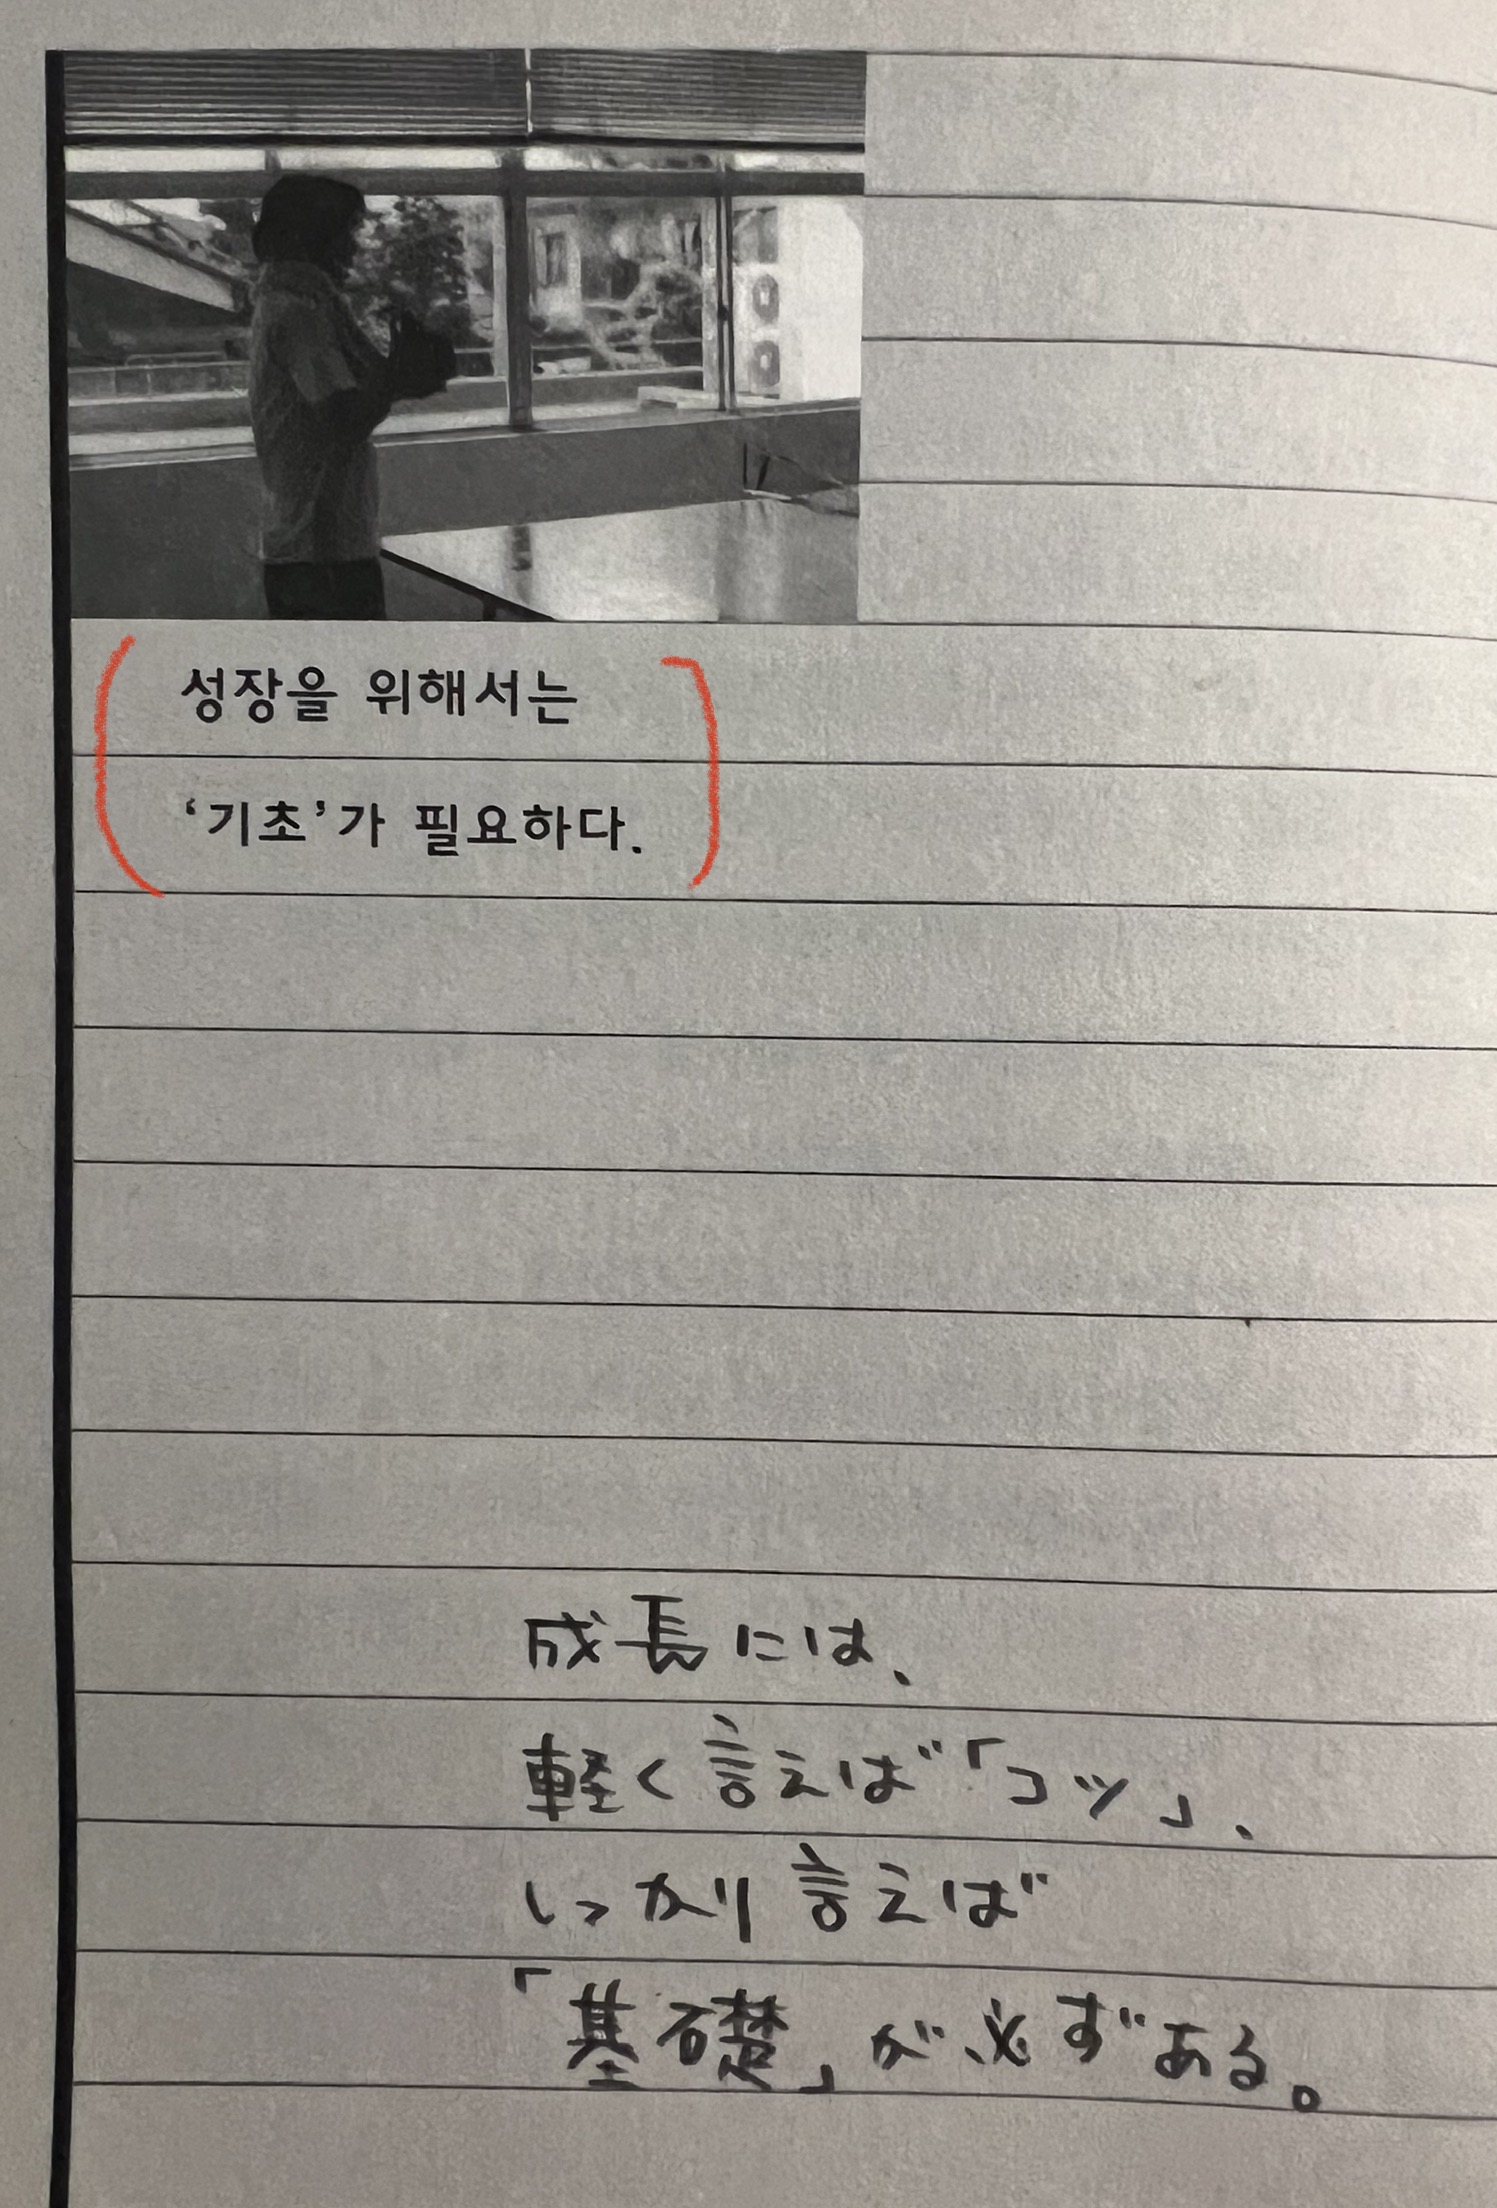 성장을 위해서는
‘기초’가 필요하다.
成長には、
軽く言えば「コツ」、
しっかり言えば
「基礎」が必ずある。